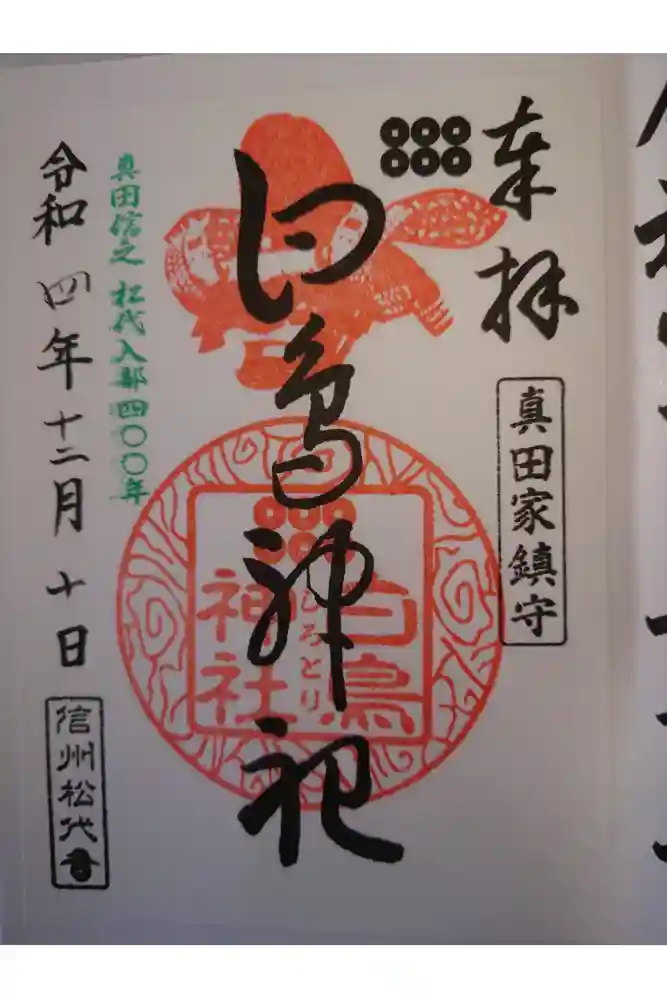 奉拝
真田家鎮守
白鳥神社
白鳥
しろとり
神社
真田信之 松代入部四〇〇年
令和 四年 十二月 十日
信州松代書